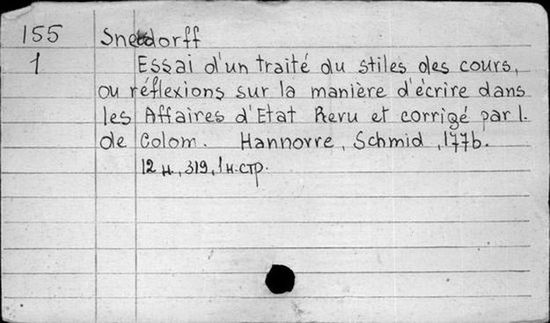 155 Sneedorff
1 Essai d'un traité du stiles des cours,
ou réflexions sur la manière d'écrire dans
les Affaires d'Etat Revu et corrigé par I.
de Colom. Hannovre, Schmid, 1776.
12 н., 319, 1 н. стр.